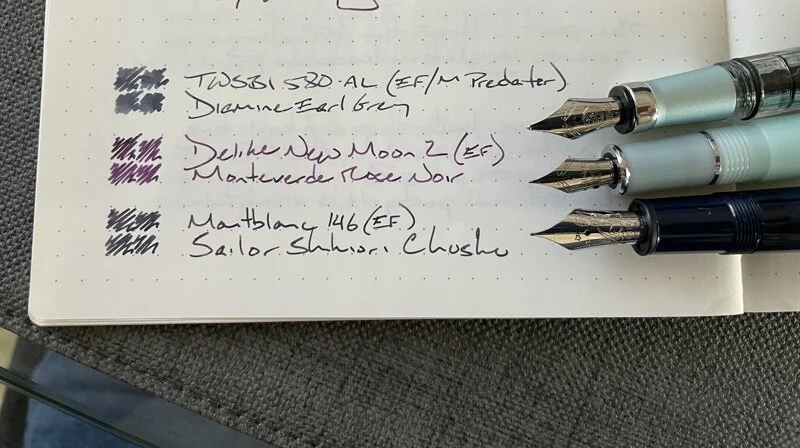 TWSBI 580-AL (EF/M Predator)
Diamine Earl Grey
Delike New Moon 2 (EF)
Monteverde Rose Noir
Montblanc 146 (EF)
Sailor Shikiori Chushu